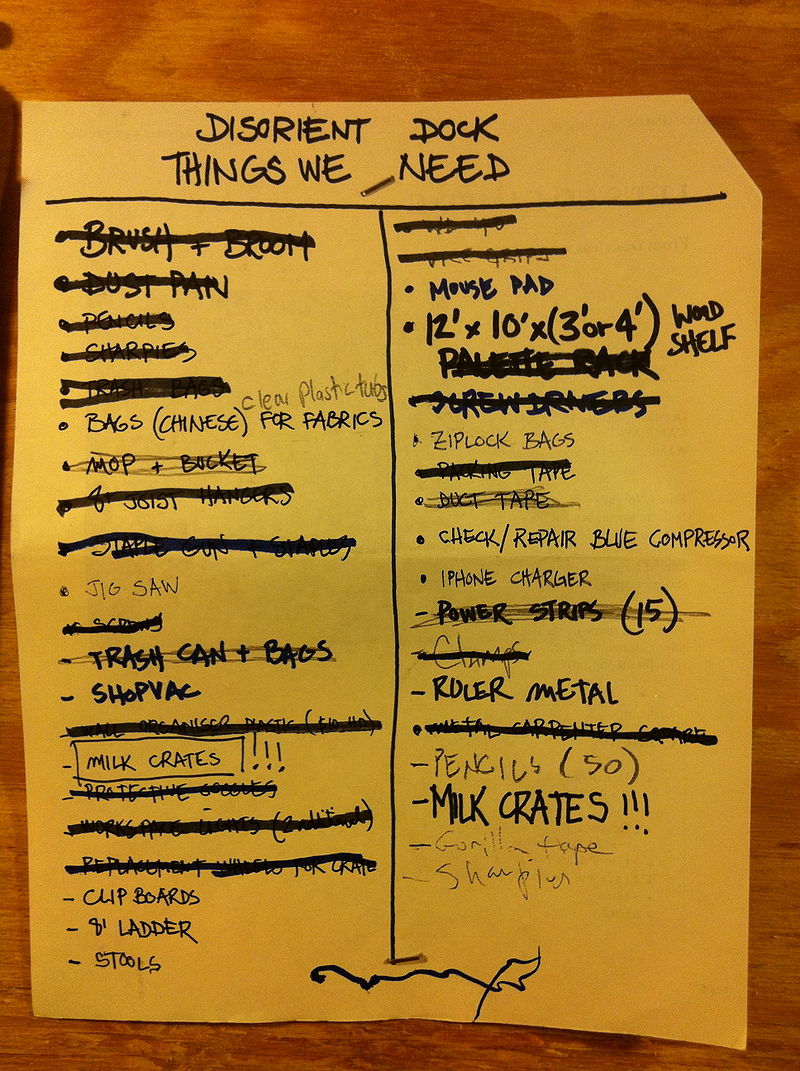 DISORIENT DOCK
THINGS WE NEED
BRUSH + BROOM
DUST PAN
PENCILS
SHARPIES
TRASH BAGS
clear plastic tubs
BAGS (CHINESE) FOR FABRICS
MOP + BUCKET
8' JOIST HANGERS
STAPLE GUN + STAPLES
JIG SAW
SCREWS
- TRASH CAN + BAGS
- SHOPVAC
WALL ORGANISER PLASTIC
- MILK CRATES !!!
- PROTECTIVE GOGGLES
- WORKSPACE LIGHTS (2 additional)
- REPLACEMENT WHEELS FOR CRATE
- CLIP BOARDS
- 8' LADDER
- STOOLS
WD 40
VICE GRIPS
• MOUSE PAD
• 12' x 10' x (3' or 4') WOOD SHELF
PALETTE RACK
• SCREWDRIVERS
• ZIPLOCK BAGS
• PACKING TAPE
• DUCT TAPE
• CHECK/REPAIR BLUE COMPRESSOR
• IPHONE CHARGER
- POWER STRIPS (15)
- Clamps
- RULER METAL
• METAL CARPENTER SQUARE
- PENCILS (50)
- MILK CRATES !!!
- Gorilla tape
- Sharpies